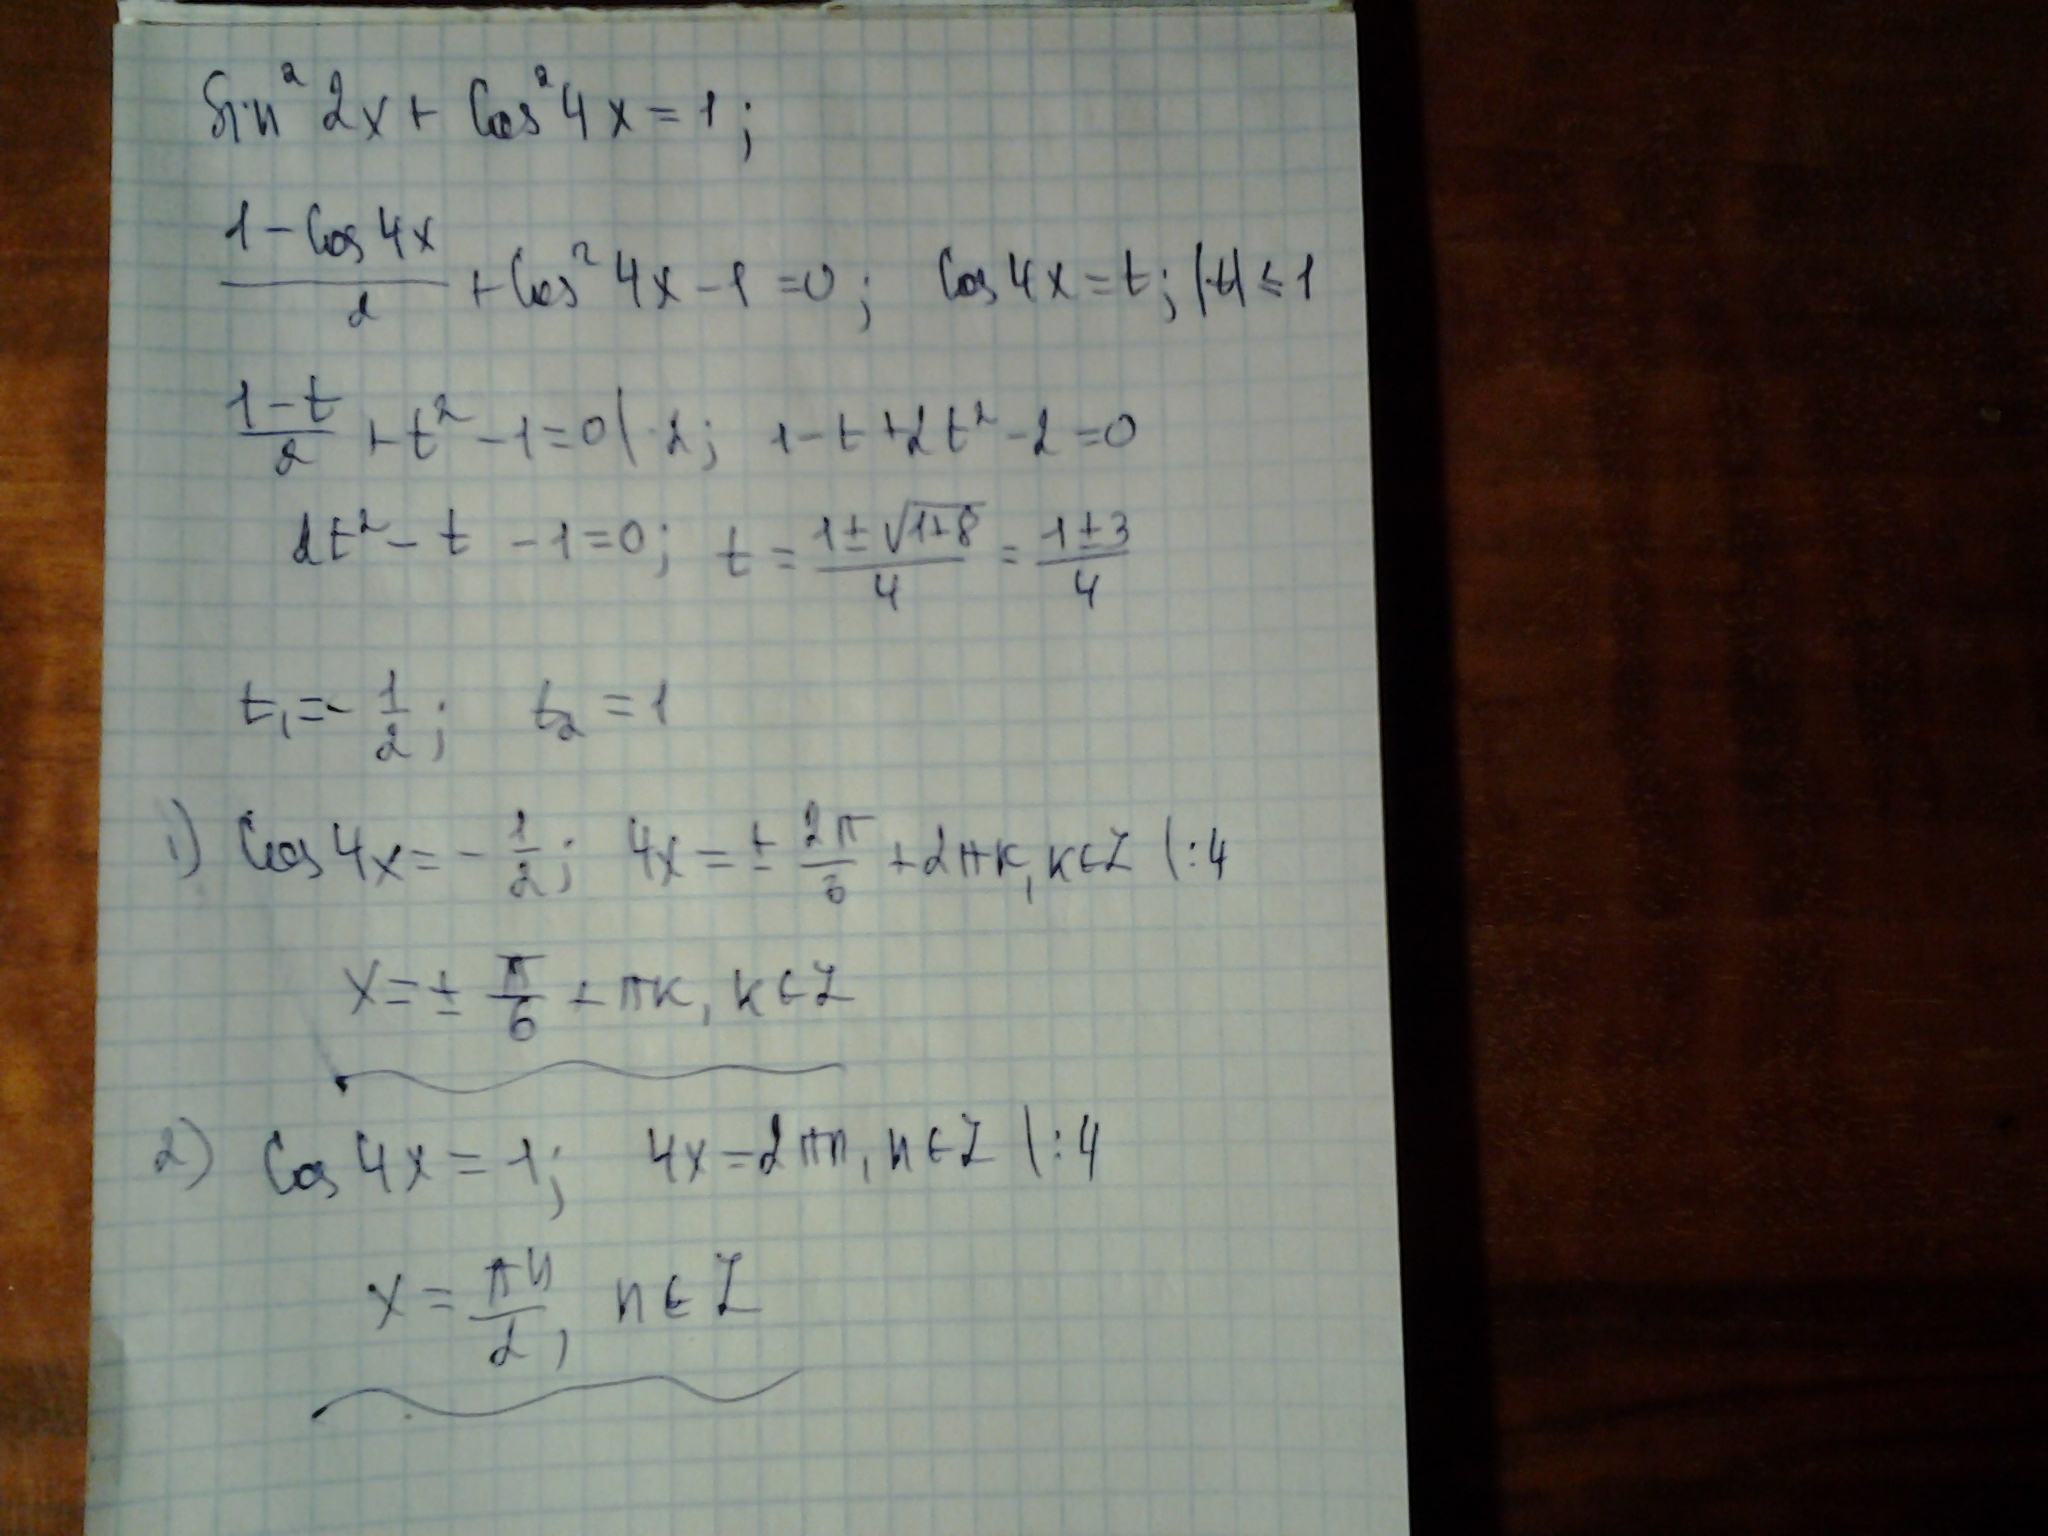 Sin² 2x + Cos² 4x = 1;
(1 - Cos 4x)/2 + Cos² 4x - 1 = 0; Cos 4x = t; |t| ≤ 1
(1 - t)/2 + t² - 1 = 0 | · 2; 1 - t + 2t² - 2 = 0
2t² - t - 1 = 0; t = (1 ± √(1+8))/4 = (1 ± 3)/4
t₁ = - 1/2; t₂ = 1
1) Cos 4x = - 1/2; 4x = ± 2π/3 + 2πk, k ∈ Z | : 4
x = ± π/6 + πk, k ∈ Z
2) Cos 4x = 1; 4x = 2πn, n ∈ Z | : 4
x = πn/2, n ∈ Z